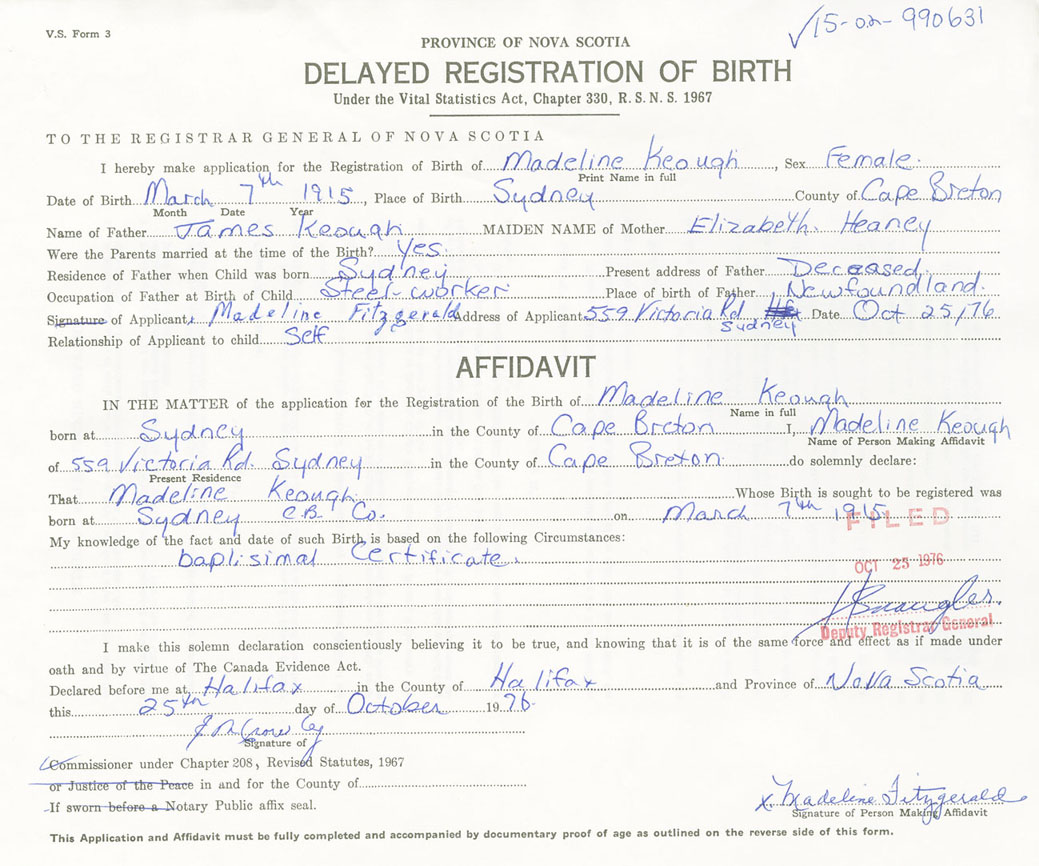 V.S. Form 3
✓15-02-990631
PROVINCE OF NOVA SCOTIA
DELAYED REGISTRATION OF BIRTH
Under the Vital Statistics Act, Chapter 330, R. S. N. S. 1967
TO THE REGISTRAR GENERAL OF NOVA SCOTIA
I hereby make application for the Registration of Birth of Madeline Keough, Sex Female.
Print Name in full
Date of Birth March 7th 1915, Place of Birth Sydney County of Cape Breton
Month Date Year
Name of Father James Keough MAIDEN NAME of Mother Elizabeth Heaney
Were the Parents married at the time of the Birth? Yes.
Residence of Father when Child was born Sydney Present address of Father Deceased.
Occupation of Father at Birth of Child Steel-worker Place of birth of Father Newfoundland.
Signature of Applicant Madeline Fitzgerald Address of Applicant 559 Victoria Rd Sydney Date Oct 25/76
Relationship of Applicant to child Self
AFFIDAVIT
IN THE MATTER of the application for the Registration of the Birth of Madeline Keough
Name in full
born at Sydney in the County of Cape Breton I, Madeline Keough
Name of Person Making Affidavit
of 559 Victoria Rd. Sydney in the County of Cape Breton do solemnly declare:
Present Residence
That Madeline Keough Whose Birth is sought to be registered was
born at Sydney C.B. Co. on March 7th 1915.
FILED
My knowledge of the fact and date of such Birth is based on the following Circumstances:
baptisimal Certificate.
OCT 25 1976
Deputy Registrar General
I make this solemn declaration conscientiously believing it to be true, and knowing that it is of the same force and effect as if made under
oath and by virtue of The Canada Evidence Act.
Declared before me at Halifax in the County of Halifax and Province of Nova Scotia
this 25th day of October 1976.
Signature of
Commissioner under Chapter 208, Revised Statutes, 1967
or Justice of the Peace in and for the County of
If sworn before a Notary Public affix seal.
x Madeline Fitzgerald
Signature of Person Making Affidavit
This Application and Affidavit must be fully completed and accompanied by documentary proof of age as outlined on the reverse side of this form.